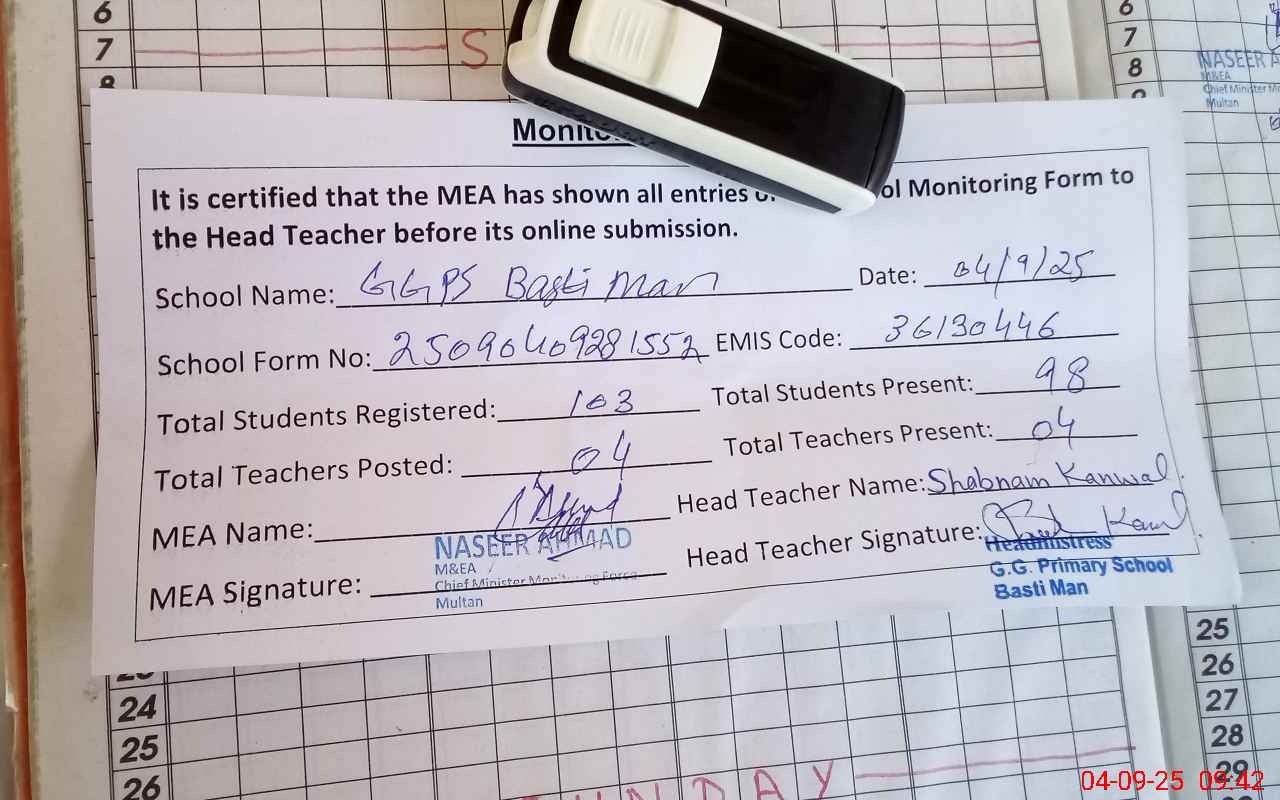 6
7 S
8
6
7
8
NASEER A
M&EA
Chief Minister Mo
Multan
It is certified that the MEA has shown all entries ol Monitoring Form to
the Head Teacher before its online submission.
School Name: GGPS Basti Man Date: 04/9/25
School Form No: 25090409281552 EMIS Code: 36130446
Total Students Registered: 103 Total Students Present: 98
Total Teachers Posted: 04 Total Teachers Present: 04
MEA Name: Head Teacher Name: Shabnam Kanwal
NASEER AHMAD
M&EA
Chief Minister Monitoring Force
Multan
MEA Signature: Head Teacher Signature:
Headmistress
G.G. Primary School
Basti Man
24
25
26
25
26
27
28
29
UNDAY
04-09-25 09:42